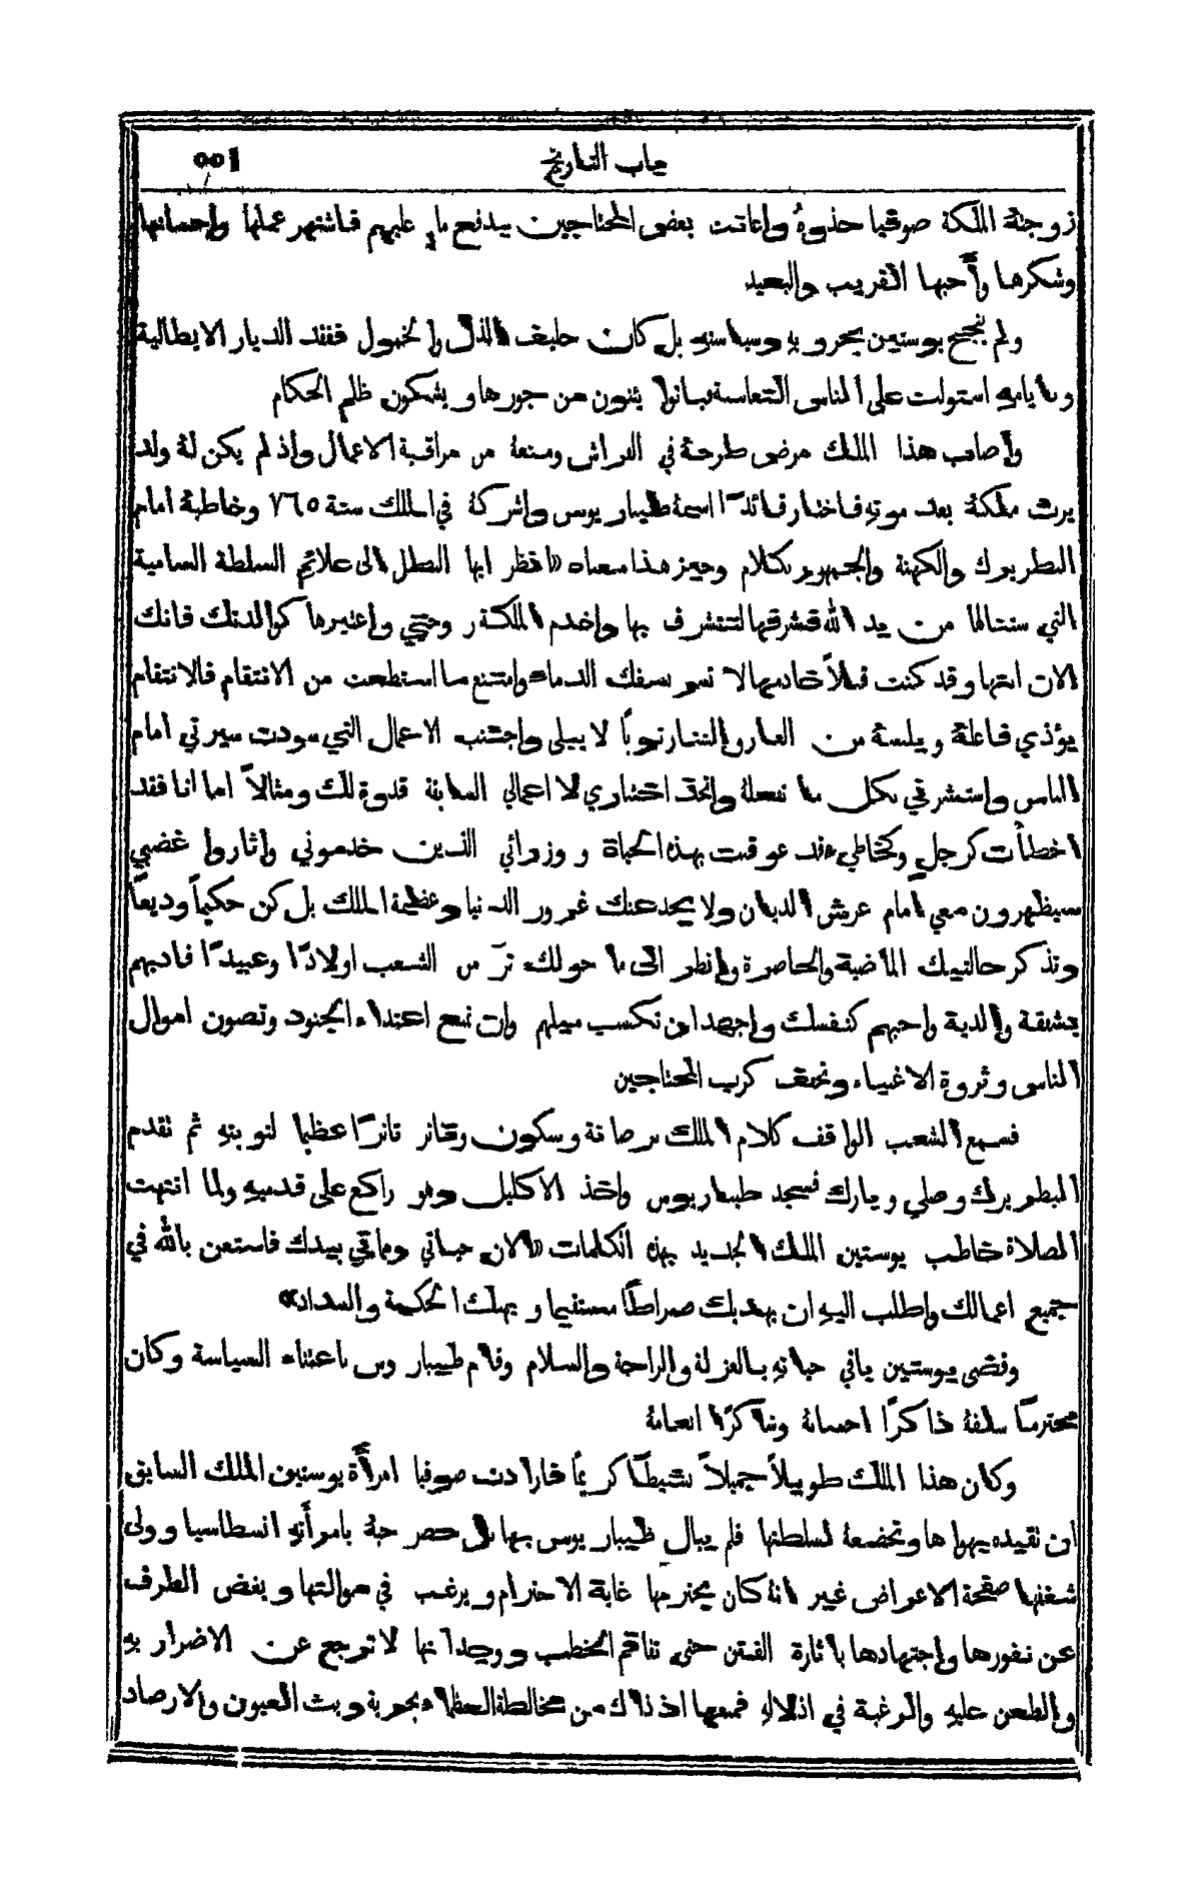 باب التاريخ ٥٥١
زوجتة الملكة صوفيا حذوهُ واعانت بعض المحتاجين بدفع ما عليهم فاشتهر عملها واحسانها
وشكرها وأحبها القريب والبعيد
ولم ينجح يوستين بحروبهِ وسياستهِ بل كان حليف الذل والخمول ففقد الديار الايطالية
وبايامهِ استولت على الناس التعاسة فباتوا يئنون من جورها ويشكون ظلم الحكام
وأصاب هذا الملك مرض طرحهُ في الفراش ومنعهُ من مراقبة الاعمال واذ لم يكن لهُ ولد
يرث ملكهُ بعد موتهِ فاختار قائدًا اسمهُ طيباريوس واشركهُ في الملك سنة ٥٧٦ وخاطبهُ امام
البطريرك والكهنة والجمهور بكلام وجيز هذا معناه «انظر ايها البطل الى علائم السلطة السامية
التي ستنالها من يد الله فشرفها لتتشرف بها واخدم الملكة زوجتي واعتبرها كوالدتك فانك
الان ابنها وقد كنت قبلاً خادمها لا تسر بسفك الدماء وامتنع ما استطعت من الانتقام فالانتقام
يؤذي فاعلهُ ويلبسهُ من العار والشنار ثوبًا لا يبلى واجتنب الاعمال التي سودت سيرتي امام
الناس واستشرني بكل ما تفعلهُ واتخذ اختباري لا اعمالي السابقة قدوة لك ومثالاً اما انا فقد
اخطأت كرجلٍ وكخاطي قد عوقبت بهذه الحياة ووزرائي الذين خدموني واثاروا غضبي
سيظهرون معي امام عرش الديان ولا يخدعنك غرور الدنيا وعظمة الملك بل كن حكيماً وديعاً
وتذكر حالتيك الماضية والحاضرة وانظر الى ما حولك ترَ من الشعب اولادًا وعبيدًا فادبهم
بشفقة والدية واحبهم كنفسك واجهد ان تكسب ميلهم وان تمنع اعتداء الجنود وتصون اموال
الناس وثروة الاغنياء وتخفف كرب المحتاجين
فسمع الشعب الواقف كلام الملك برصانة وسكون وتاثر تاثرًا عظيما لتوبتهِ ثم تقدم
البطريرك وصلى وبارك فسجد طيباريوس واخذ الاكليل وهو راكع على قدميهِ ولما انتهت
الصلاة خاطب يوستين الملك الجديد بهذه الكلمات «الان حياتي ومماتي بيدك فاستعن بالله في
جميع اعمالك واطلب اليهِ ان يهديك صراطًا مستقيما ويهبك الحكمة والسداد»
وقضى يوستين باقي حياتهِ بالعزلة والراحة والسلام وقام طيباروس باعتناء السياسة وكان
محترمًا سلفهُ ذاكرًا احسانهُ وشاكرًا انعامهُ
وكان هذا الملك طويلاً جميلاً نشيطًا كريمًا فارادت صوفيا امرأة يوستين الملك السابق
ان تقيده بهواها وتخضعهُ لسلطتها فلم يبال طيباريوس بها بل حصر حبهُ بامرأتهِ انسطاسيا وولى
شغفها صفحة الاعراض غير انهُ كان يحترمها غاية الاحترام ويرغب في موالتها وبغض الطرف
عن نفورها واجتهادها باثارة الفتن حتى تفاقم الخطب ووجد انها لا ترجع عن الاضرار بهِ
والطعن عليهِ والرغبة في اذلالهِ فمنعها اذ ذاك من مخالطة العظماء بحرية وبث العيون والارصاد